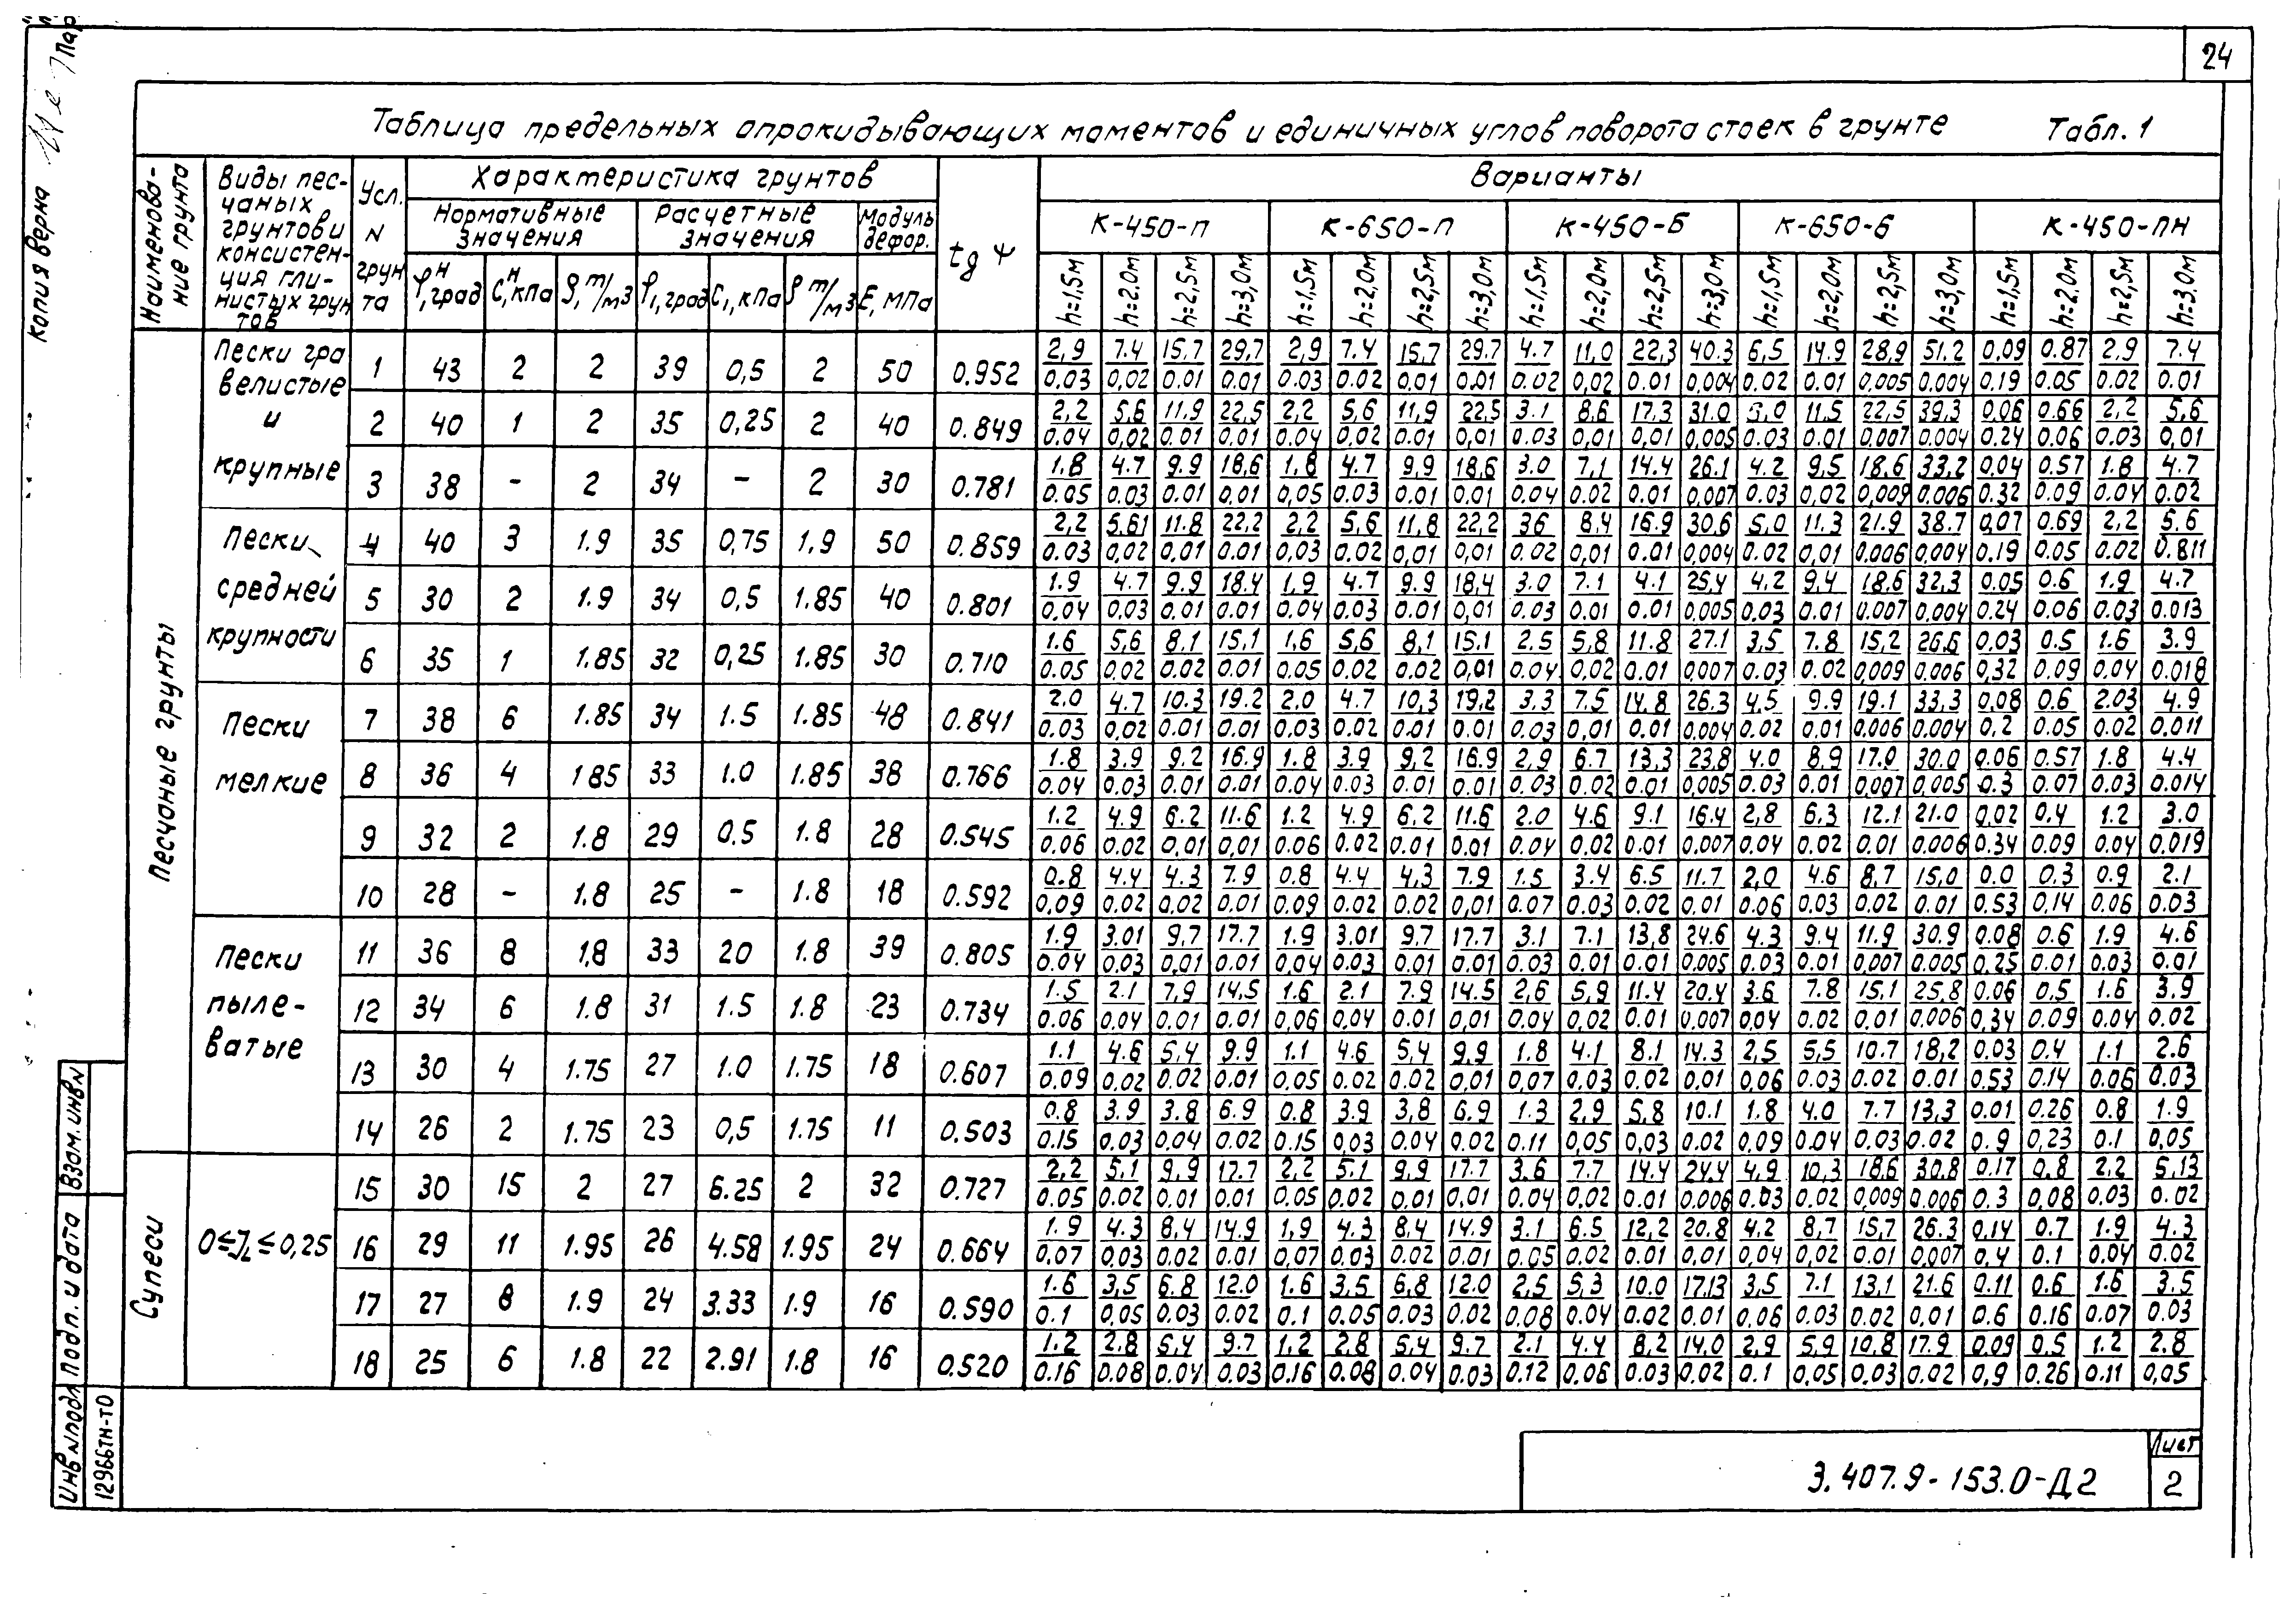 24
Копия верна
Таблица предельных опрокидывающих моментов и единичных углов поворота стоек в грунте Табл. 1
Наименова-
ние грунта
Виды пес-
чаных
грунтов и
консистен-
ция гли-
нистых грун
тов
Усл.
N
грун
та
Характеристика грунтов
Нормативные
значения
Расчетные
значения
Модуль
дефор.
φᴴ, град Cᴴ, кПа ρ, т/м3 φ₁, град C₁, кПа ρ т/м3 E, МПа
tg ψ
Варианты
К-450-П К-650-П К-450-Б К-650-Б К-450-ПН
h=1,5м h=2.0м h=2,5м h=3,0м h=1,5м h=2,0м h=2,5м h=3,0м h=1,5м h=2,0м h=2,5м h=3,0м h=1,5м h=2,0м h=2,5м h=3,0м h=1,5м h=2,0м h=2,5м h=3,0м
Песчаные грунты
Пески гра
велистые
и
крупные
1 43 2 2 39 0,5 2 50 0.952
2,9 7.4 15,7 29,7 2,9 7.4 15,7 29.7 4.7 11,0 22,3 40.3 6,5 14.9 28,9 51.2 0,09 0.87 2.9 7.4
0.03 0,02 0.01 0.01 0.03 0.02 0,01 0.01 0.02 0,02 0.01 0,004 0.02 0.01 0,005 0.004 0.19 0.05 0.02 0.01
2 40 1 2 35 0,25 2 40 0.849
2,2 5,6 11,9 22,5 2,2 5,6 11,9 22,5 3.1 8,6 17,3 31.0 11,5 22,5 39,3 0,06 0.66 2,2 5,6
0.04 0,02 0.01 0.01 0.04 0,02 0.01 0,01 0.03 0,01 0,01 0,005 0.03 0.01 0,007 0.004 0.24 0.06 0.03 0,01
3 38 - 2 34 - 2 30 0.781
1,8 4.7 9.9 18,6 1,8 4.7 9,9 18,6 3.0 7,1 14.4 26.1 4.2 9,5 18.6 33,2 0,04 0.57 1.8 4.7
0.05 0.03 0.01 0.01 0,05 0.03 0.01 0.01 0.04 0.02 0.01 0.007 0.03 0,02 0,009 0.006 0.32 0.09 0.04 0.02
Пески
средней
крупности
4 40 3 1.9 35 0,75 1,9 50 0.859
2,2 5,61 11.8 22,2 2,2 5,6 11,8 22,2 36 8,4 16.9 30,6 5,0 11.3 21.9 38.7 0,07 0.69 2,2 5.6
0.03 0,02 0.01 0.01 0,03 0.02 0,01 0,01 0.02 0,01 0.01 0,004 0.02 0,01 0,006 0,004 0.19 0,05 0.02 0.811
5 30 2 1.9 34 0,5 1.85 40 0.801
1.9 4.7 9.9 18.4 1,9 4.7 9.9 18,4 3.0 7.1 4.1 25,4 4.2 9,4 18.6 32,3 0.05 0.6 1.9 4.7
0.04 0,03 0.01 0.01 0.04 0.03 0.01 0,01 0.03 0.01 0.01 0,005 0.03 0.01 0.007 0,004 0.24 0.06 0.03 0.013
6 35 1 1.85 32 0,25 1.85 30 0.710
1.6 5,6 8,1 15,1 1,6 5,6 8,1 15.1 2.5 5,8 11.8 27.1 3,5 7.8 15,2 26,6 0,03 0.5 1.6 3.9
0.05 0,02 0.02 0.01 0.05 0.02 0.02 0,01 0,04 0,02 0.01 0,007 0.03 0.02 0,009 0,006 0,32 0,09 0,04 0.018
Пески
мелкие
7 38 6 1.85 34 1.5 1.85 48 0.841
2.0 4.7 10.3 19.2 2.0 4.7 10,3 19,2 3.3 7.5 14.8 26.3 4,5 9.9 19.1 33,3 0,08 0.6 2.03 4.9
0.03 0,02 0.01 0.01 0.03 0.02 0.01 0.01 0.03 0,01 0.01 0.004 0.02 0.01 0.006 0.004 0,2 0.05 0.02 0.011
8 36 4 185 33 1.0 1.85 38 0.766
1.8 3.9 9.2 16.9 1.8 3.9 9,2 16.9 2,9 6.7 13,3 23,8 4.0 8,9 17.0 30.0 0,06 0.57 1.8 4.4
0.04 0.03 0.01 0.01 0.04 0.03 0.01 0.01 0.03 0.02 0.01 0,005 0.03 0.01 0,007 0,005 0.3 0.07 0.03 0.014
9 32 2 1.8 29 0.5 1.8 28 0.545
1.2 4.9 6.2 11.6 1.2 4.9 6.2 11.6 2.0 4.6 9.1 16.4 2,8 6.3 12.1 21.0 0,02 0.4 1.2 3.0
0.06 0.02 0.01 0,01 0.06 0.02 0.01 0.01 0.04 0.02 0.01 0.007 0.04 0.02 0.01 0.006 0.34 0.09 0.04 0.019
10 28 - 1.8 25 - 1.8 18 0.592
0.8 4.4 4.3 7.9 0.8 4.4 4,3 7.9 1.5 3.4 6.5 11.7 2,0 4.6 8,7 15,0 0.0 0,3 0.9 2.1
0,09 0.02 0,02 0.01 0.09 0.02 0.02 0,01 0.07 0.03 0.02 0.01 0.06 0.03 0.02 0.01 0.53 0,14 0.06 0.03
Пески
пыле-
ватые
11 36 8 1,8 33 20 1.8 39 0.805
1.9 3.01 9,7 17.7 1.9 3.01 9.7 17.7 3.1 7.1 13,8 24.6 4.3 9.4 11.9 30.9 0.08 0.6 1.9 4.6
0.04 0.03 0,01 0.01 0,04 0.03 0.01 0.01 0.03 0.01 0.01 0.005 0.03 0.01 0,007 0.005 0,25 0.01 0.03 0.01
12 34 6 1.8 31 1.5 1.8 23 0.734
1.5 2.1 7,9 14,5 1.6 2.1 7.9 14.5 2,6 5,9 11.4 20,4 3.6 7.8 15,1 25,8 0.06 0,5 1.6 3.9
0.06 0,04 0.01 0.01 0,06 0,04 0.01 0,01 0.04 0,02 0.01 0.007 0,04 0.02 0.01 0.006 0,34 0.09 0.04 0.02
13 30 4 1.75 27 1.0 1.75 18 0.607
1.1 4.6 5,4 9.9 1.1 4.6 5,4 9,9 1.8 4.1 8.1 14.3 2,5 5,5 10.7 18,2 0.03 0.4 1.1 2.6
0.09 0.02 0.02 0.01 0.05 0.02 0.02 0,01 0,07 0.03 0.02 0.01 0,06 0.03 0.02 0.01 0.53 0.14 0.06 0.03
14 26 2 1.75 23 0,5 1.75 11 0.503
0.8 3.9 3.8 6.9 0.8 3.9 3,8 6.9 1.3 2.9 5.8 10.1 1.8 4.0 7.7 13,3 0.01 0.26 0.8 1.9
0.15 0.03 0,04 0.02 0.15 0,03 0.04 0.02 0.11 0,05 0,03 0.02 0,09 0.04 0.03 0.02 0.9 0,23 0.1 0,05
Супеси
0≤JL≤0,25
15 30 15 2 27 6.25 2 32 0.727
2.2 5.1 9,9 17.7 2,2 5.1 9,9 17.7 3.6 7.7 14.4 24,4 4,9 10,3 18,6 30,8 0.17 0,8 2,2 5,13
0.05 0.02 0.01 0.01 0.05 0.02 0,01 0,01 0.04 0.02 0.01 0,006 0.03 0.02 0,009 0.006 0.3 0,08 0.03 0.02
16 29 11 1.95 26 4.58 1.95 24 0.664
1.9 4.3 8,4 14,9 1,9 4.3 8,4 14,9 3.1 6.5 12,2 20.8 4.2 8,7 15,7 26.3 0,14 0.7 1.9 4.3
0.07 0.03 0.02 0.01 0,07 0.03 0.02 0.01 0.05 0.02 0.01 0,01 0,04 0,02 0.01 0,007 0,4 0.1 0,04 0.02
17 27 8 1.9 24 3.33 1.9 16 0.590
1.6 3,5 6.8 12.0 1.6 3.5 6,8 12.0 2,5 5,3 10.0 17.13 3,5 7.1 13,1 21.6 0.11 0.6 1.6 3.5
0.1 0,05 0.03 0.02 0.1 0.05 0.03 0.02 0.08 0.04 0.02 0.01 0.06 0.03 0.02 0,01 0,6 0.16 0.07 0.03
18 25 6 1.8 22 2.91 1.8 16 0.520
1.2 2.8 5,4 9.7 1.2 2.8 5,4 9.7 2.1 4.4 8,2 14,0 2,9 5,9 10,8 17.9 0,09 0.5 1.2 2.8
0.16 0.08 0.04 0.03 0.16 0.08 0.04 0.03 0.12 0,06 0.03 0.02 0.1 0,05 0.03 0.02 0,9 0.26 0.11 0,05
Взам. инв N
Подп. и дата
Инв N подл
12966тн-т0
3.407.9-153.0-Д2
Лист
2